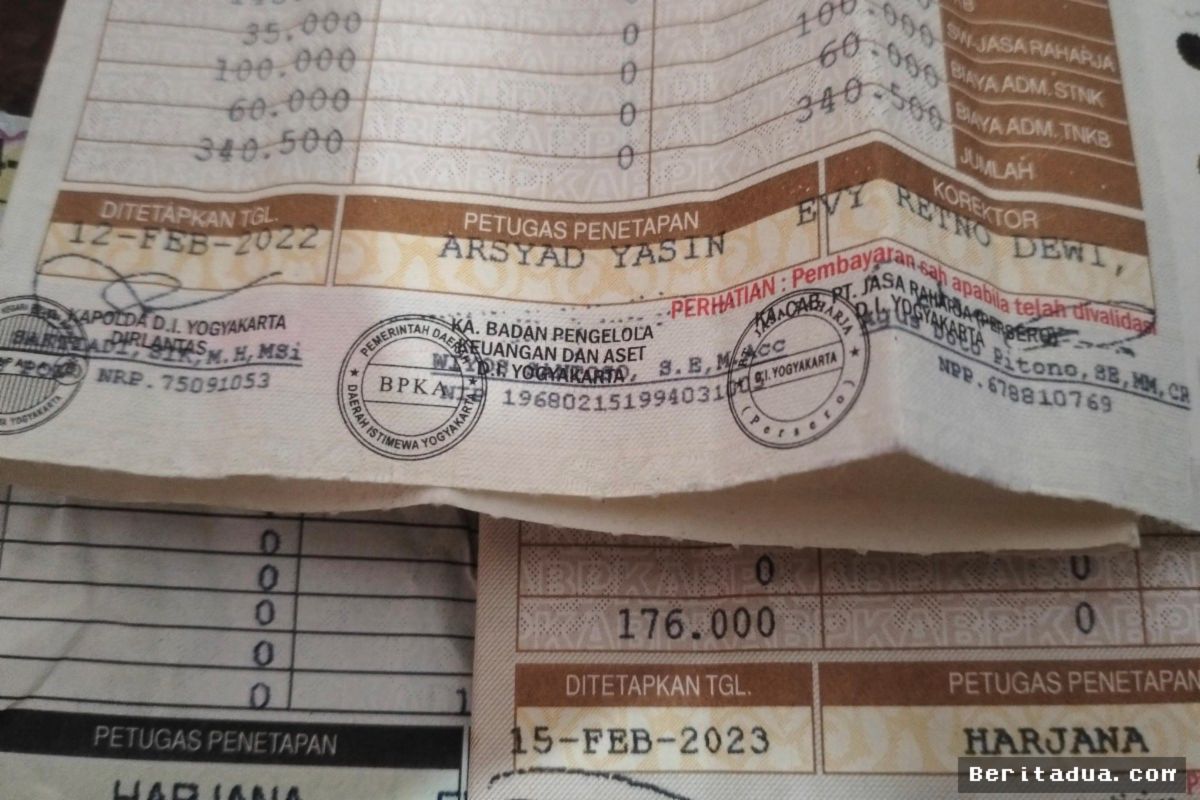 35.000 0 100.000 SW-JASA RAHARJA
100.000 0 60.000 BIAYA ADM.STNK
60.000 0 340.500 BIAYA ADM. TNKB
340.500 0 JUMLAH
DITETAPKAN TGL. PETUGAS PENETAPAN KOREKTOR
12-FEB-2022 ARSYAD YASIN EVY RETNO DEWI,
PERHATIAN : Pembayaran sah apabila telah divalidasi
KAPOLDA D.I. YOGYAKARTA
DIRLANTAS
SIK, M.H, MSi
NRP. 75091053
PEMERINTAH DAERAH
BPKA
DAERAH ISTIMEWA YOGYAKARTA
KA. BADAN PENGELOLA
KEUANGAN DAN ASET
D.I. YOGYAKARTA
S.E, M.Acc
NIP
KA. CAB. PT. JASA RAHARJA (PERSERO)
D.I. YOGYAKARTA
JASA RAHARJA
D.I. YOGYAKARTA
(Persero)
Pitono, SE, MM, CR
NPP. 678810769
0
0
0
0
0
PETUGAS PENETAPAN
HARJANA
0 0
176.000 0
DITETAPKAN TGL. PETUGAS PENETAPAN
15-FEB-2023 HARJANA
Beritadua.com